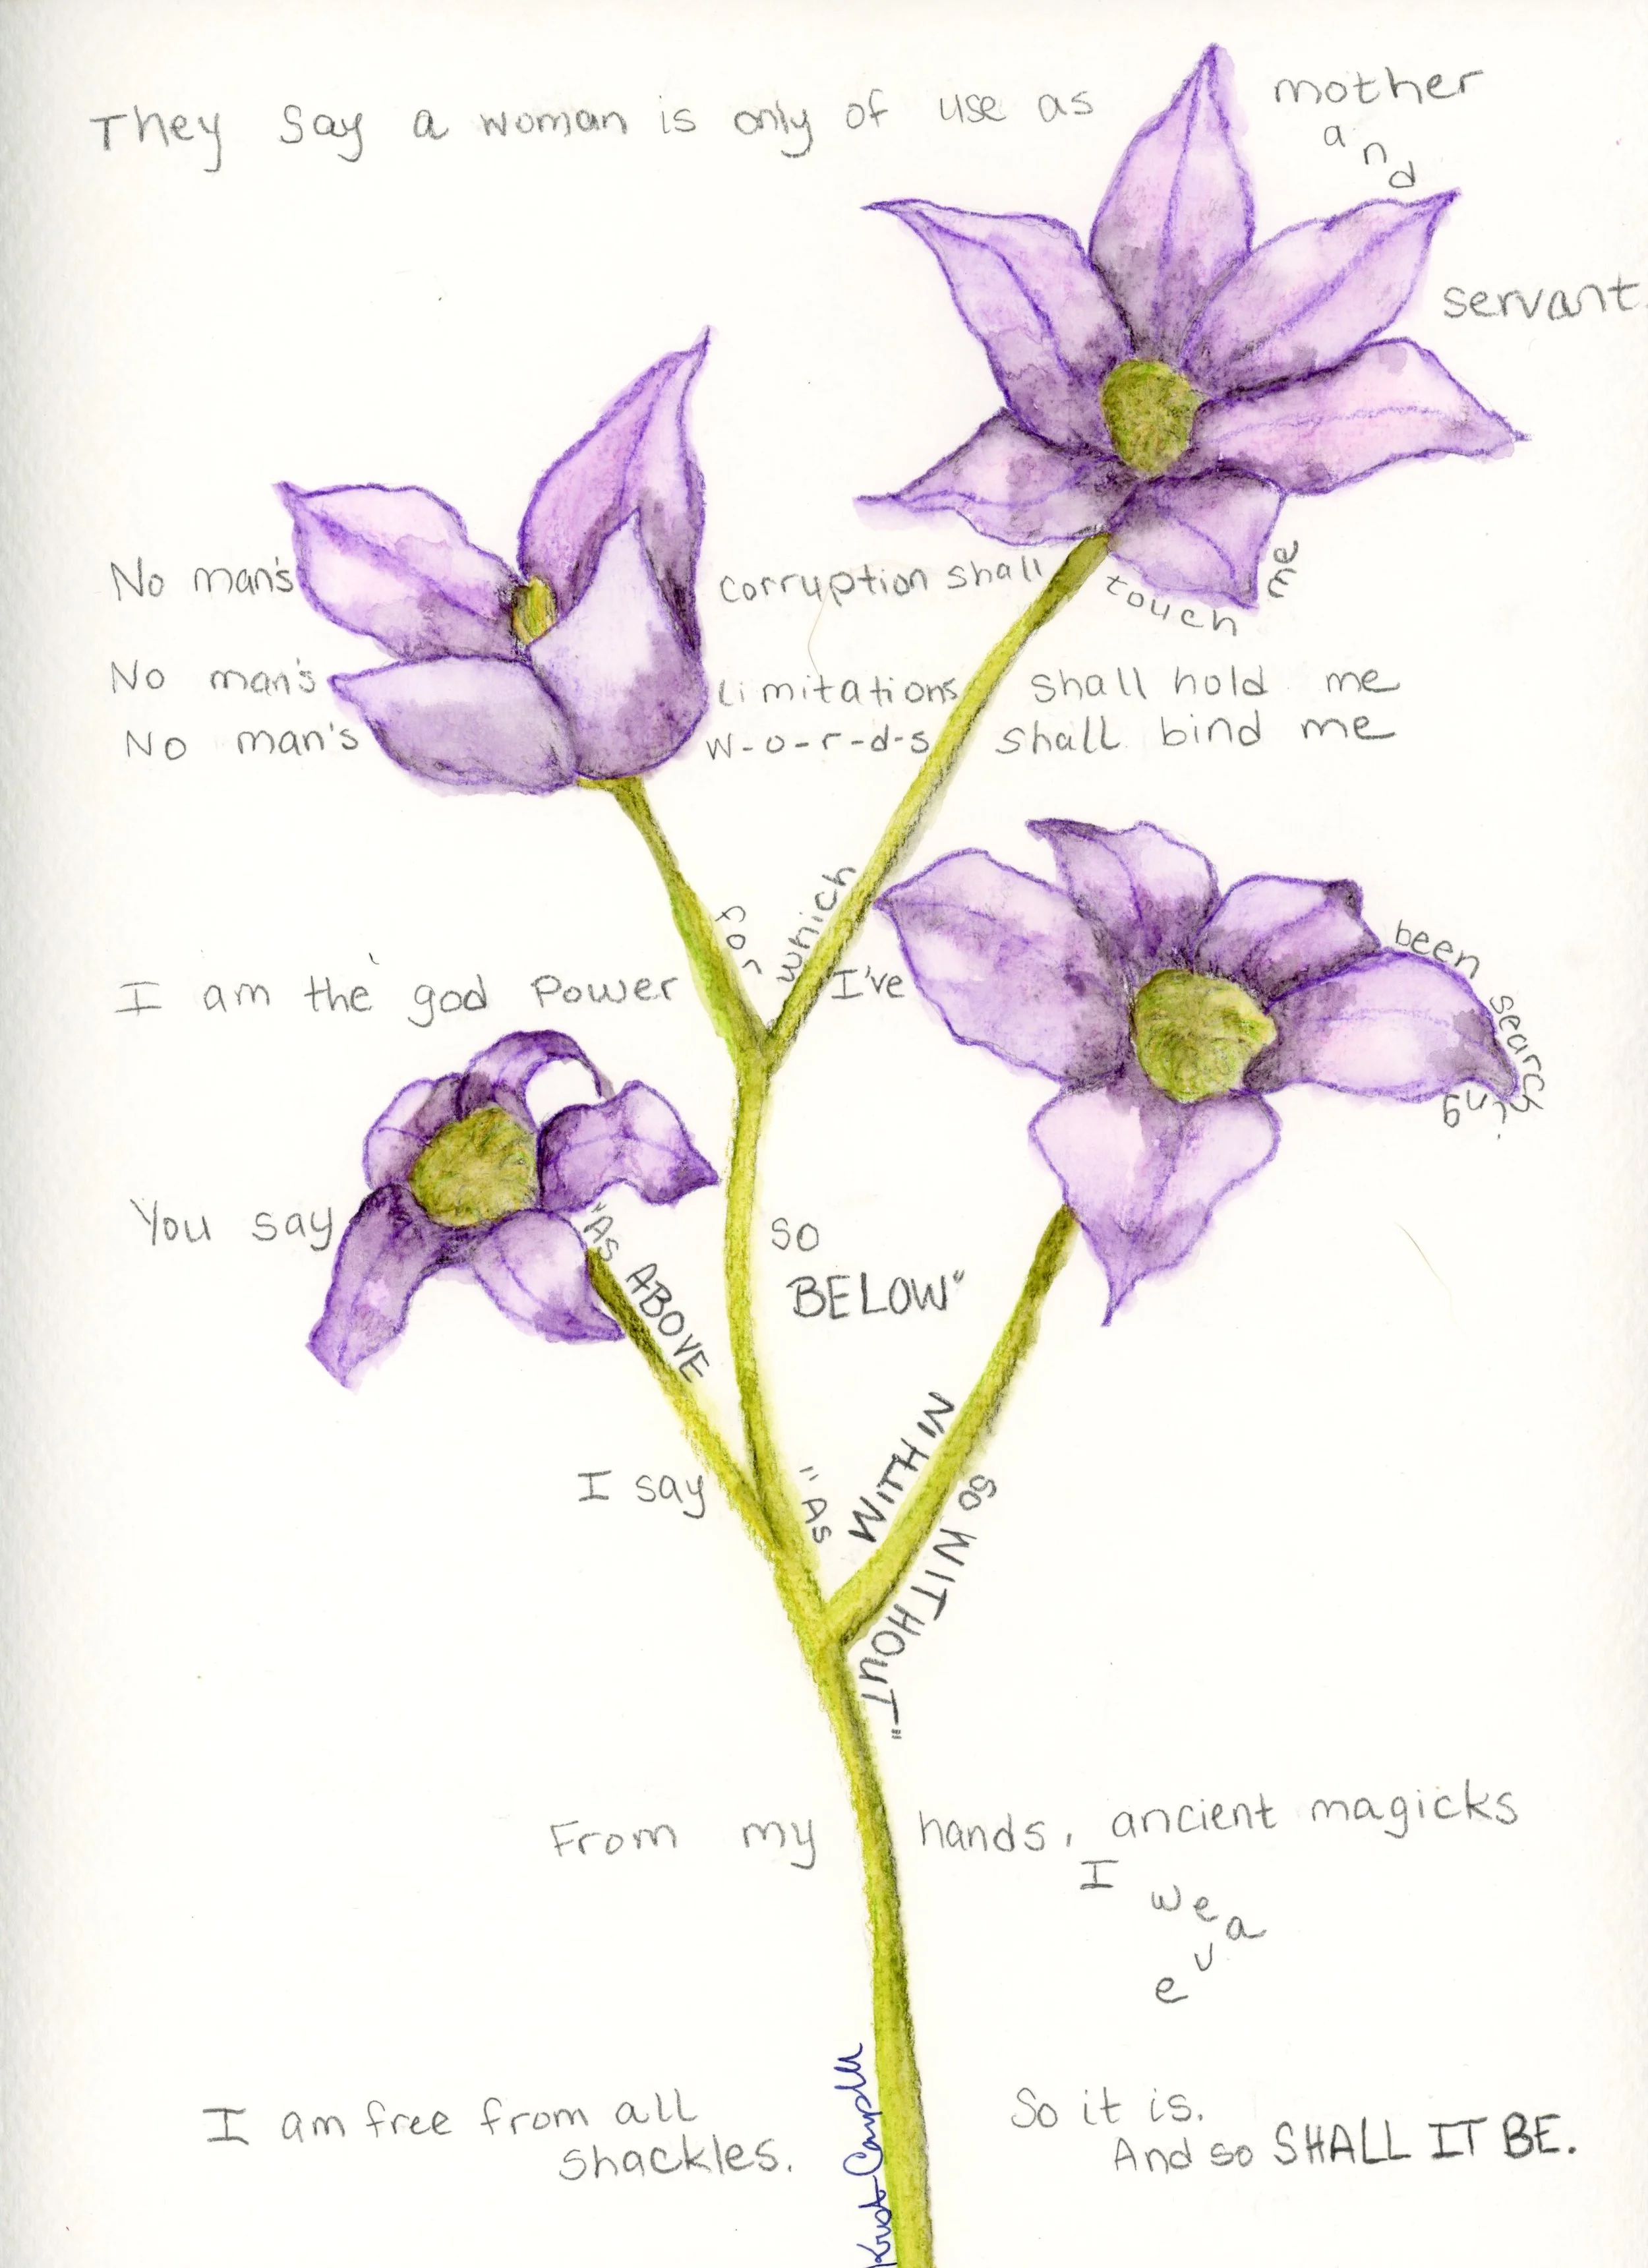 They Say a woman is only of use as mother
and
servant.
No man's corruption shall touch me
No man's limitations shall hold me
No man's w-o-r-d-s shall bind me
I am the god Power for which I've been searching.
You say "As ABOVE
SO
BELOW"
I say "As WITHIN
SO WITHOUT"
From my hands, ancient magicks
I weave
I am free from all
shackles.
So it is.
And so SHALL IT BE.